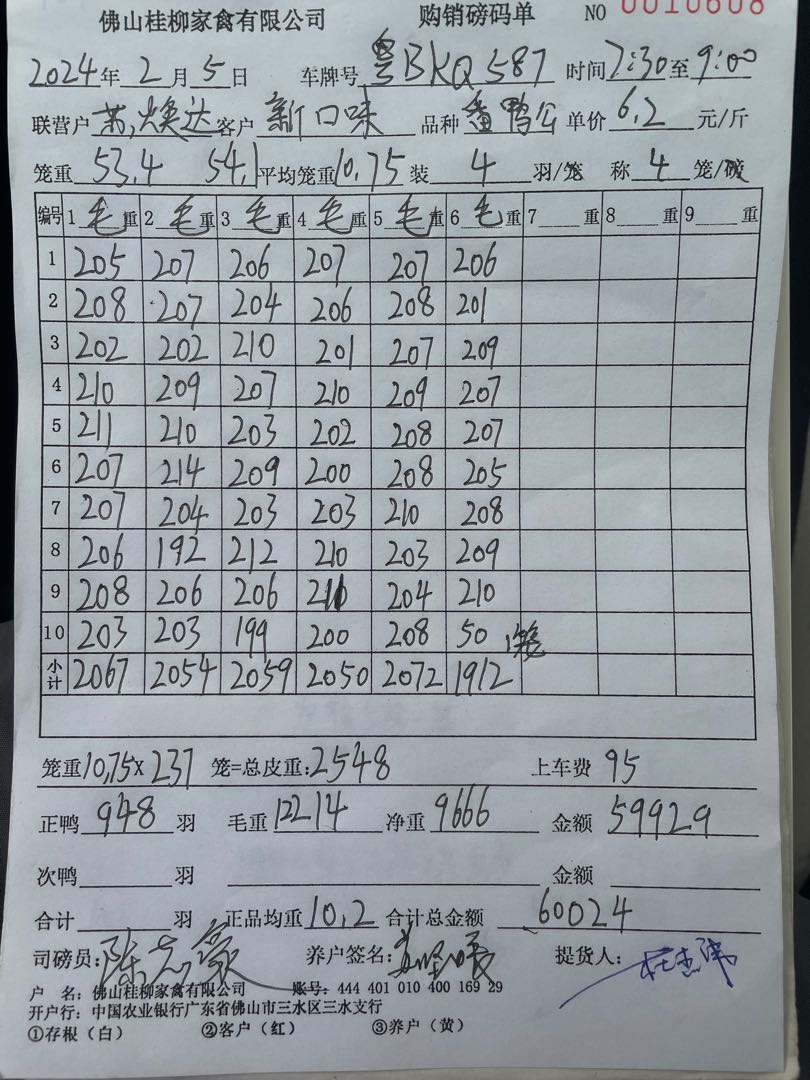 佛山桂柳家禽有限公司 购销磅码单 NO 0010608
2024年2月5日 车牌号 粤BKQ587 时间7:30至9:00
联营户 焕达 客户 新口味 品种 番鸭公 单价 6.2 元/斤
笼重 53.4 54.1 平均笼重 10.75 装 4 羽/笼 称 4 笼/磅
编号 1 毛 重 2 毛 重 3 毛 重 4 毛 重 5 毛 重 6 毛 重 7 重 8 重 9 重
1 205 207 206 207 207 206
2 208 207 204 206 208 201
3 202 202 210 201 207 209
4 210 209 207 210 209 207
5 211 210 203 202 208 207
6 207 214 209 200 208 205
7 207 204 203 203 210 208
8 206 192 212 210 203 209
9 208 206 206 211 204 210
10 203 203 199 200 208 50 1笼
小计 2067 2054 2059 2050 2072 1912
笼重10.75X 237 笼=总皮重:2548 上车费 95
正鸭 948 羽 毛重 12214 净重 9666 金额 59929
次鸭 羽 金额
合计 羽 正品均重 10.2 合计总金额 60024
司磅员:陈志豪 养户签名: 提货人:
户 名:佛山桂柳家禽有限公司 账号:444 401 010 400 169 29
开户行:中国农业银行广东省佛山市三水区三水支行
①存根(白) ②客户(红) ③养户(黄)